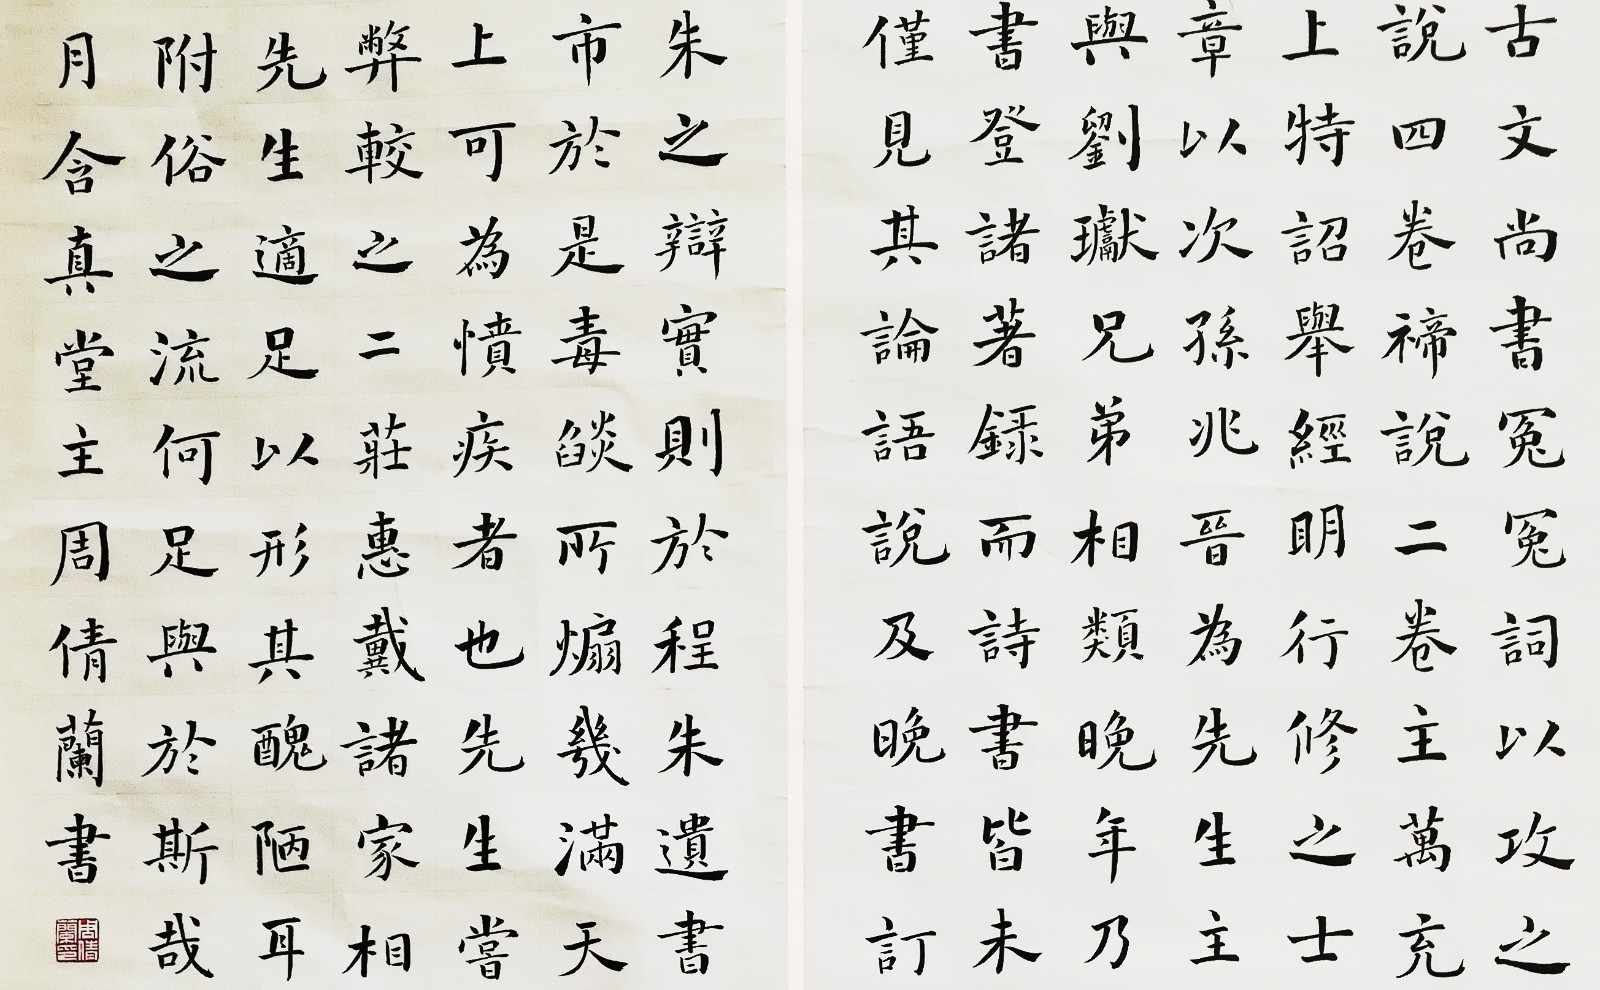 古文尚書冤冤詞以攻之
說四卷禘說二卷主萬充
上特詔舉經明行修之士
章以次孫兆晉為先生主
與劉瓛兄弟相類晚年乃
書登諸著録而詩書皆未
僅見其論語說及晚書訂
朱之辯實則於程朱遺書
市於是毒燄所煽幾滿天
上可為憤疾者也先生嘗
弊較之二莊惠戴諸家相
先生適足以形其醜陋耳
附俗之流何足與於斯哉
月含真堂主周倩蘭書
周倩蘭印